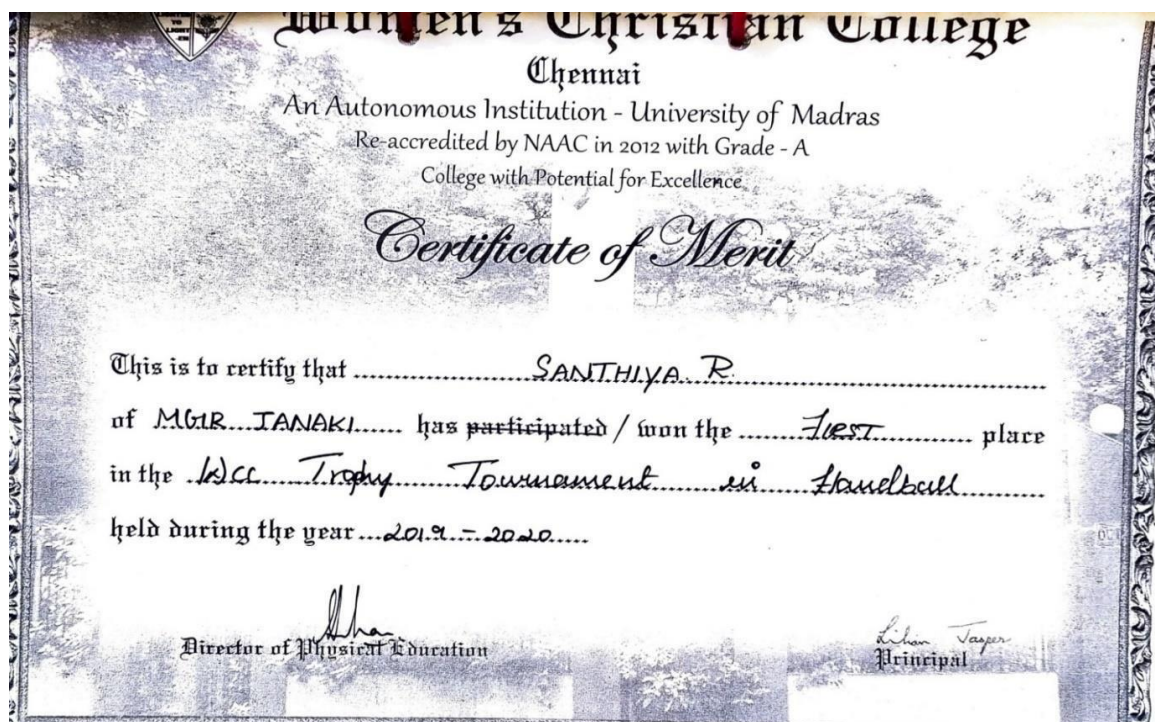 LIGHTED
TO
LIGHTEN
Women's Christian College
Chennai
An Autonomous Institution - University of Madras
Re-accredited by NAAC in 2012 with Grade - A
College with Potential for Excellence
Certificate of Merit
This is to certify that SANTHIYA. R.
of MGR JANAKI has participated / won the FIRST place
in the Wcc Trophy Tournament in Handball
held during the year 2019 - 2020
Director of Physical Education
Lilian Jasper
Principal